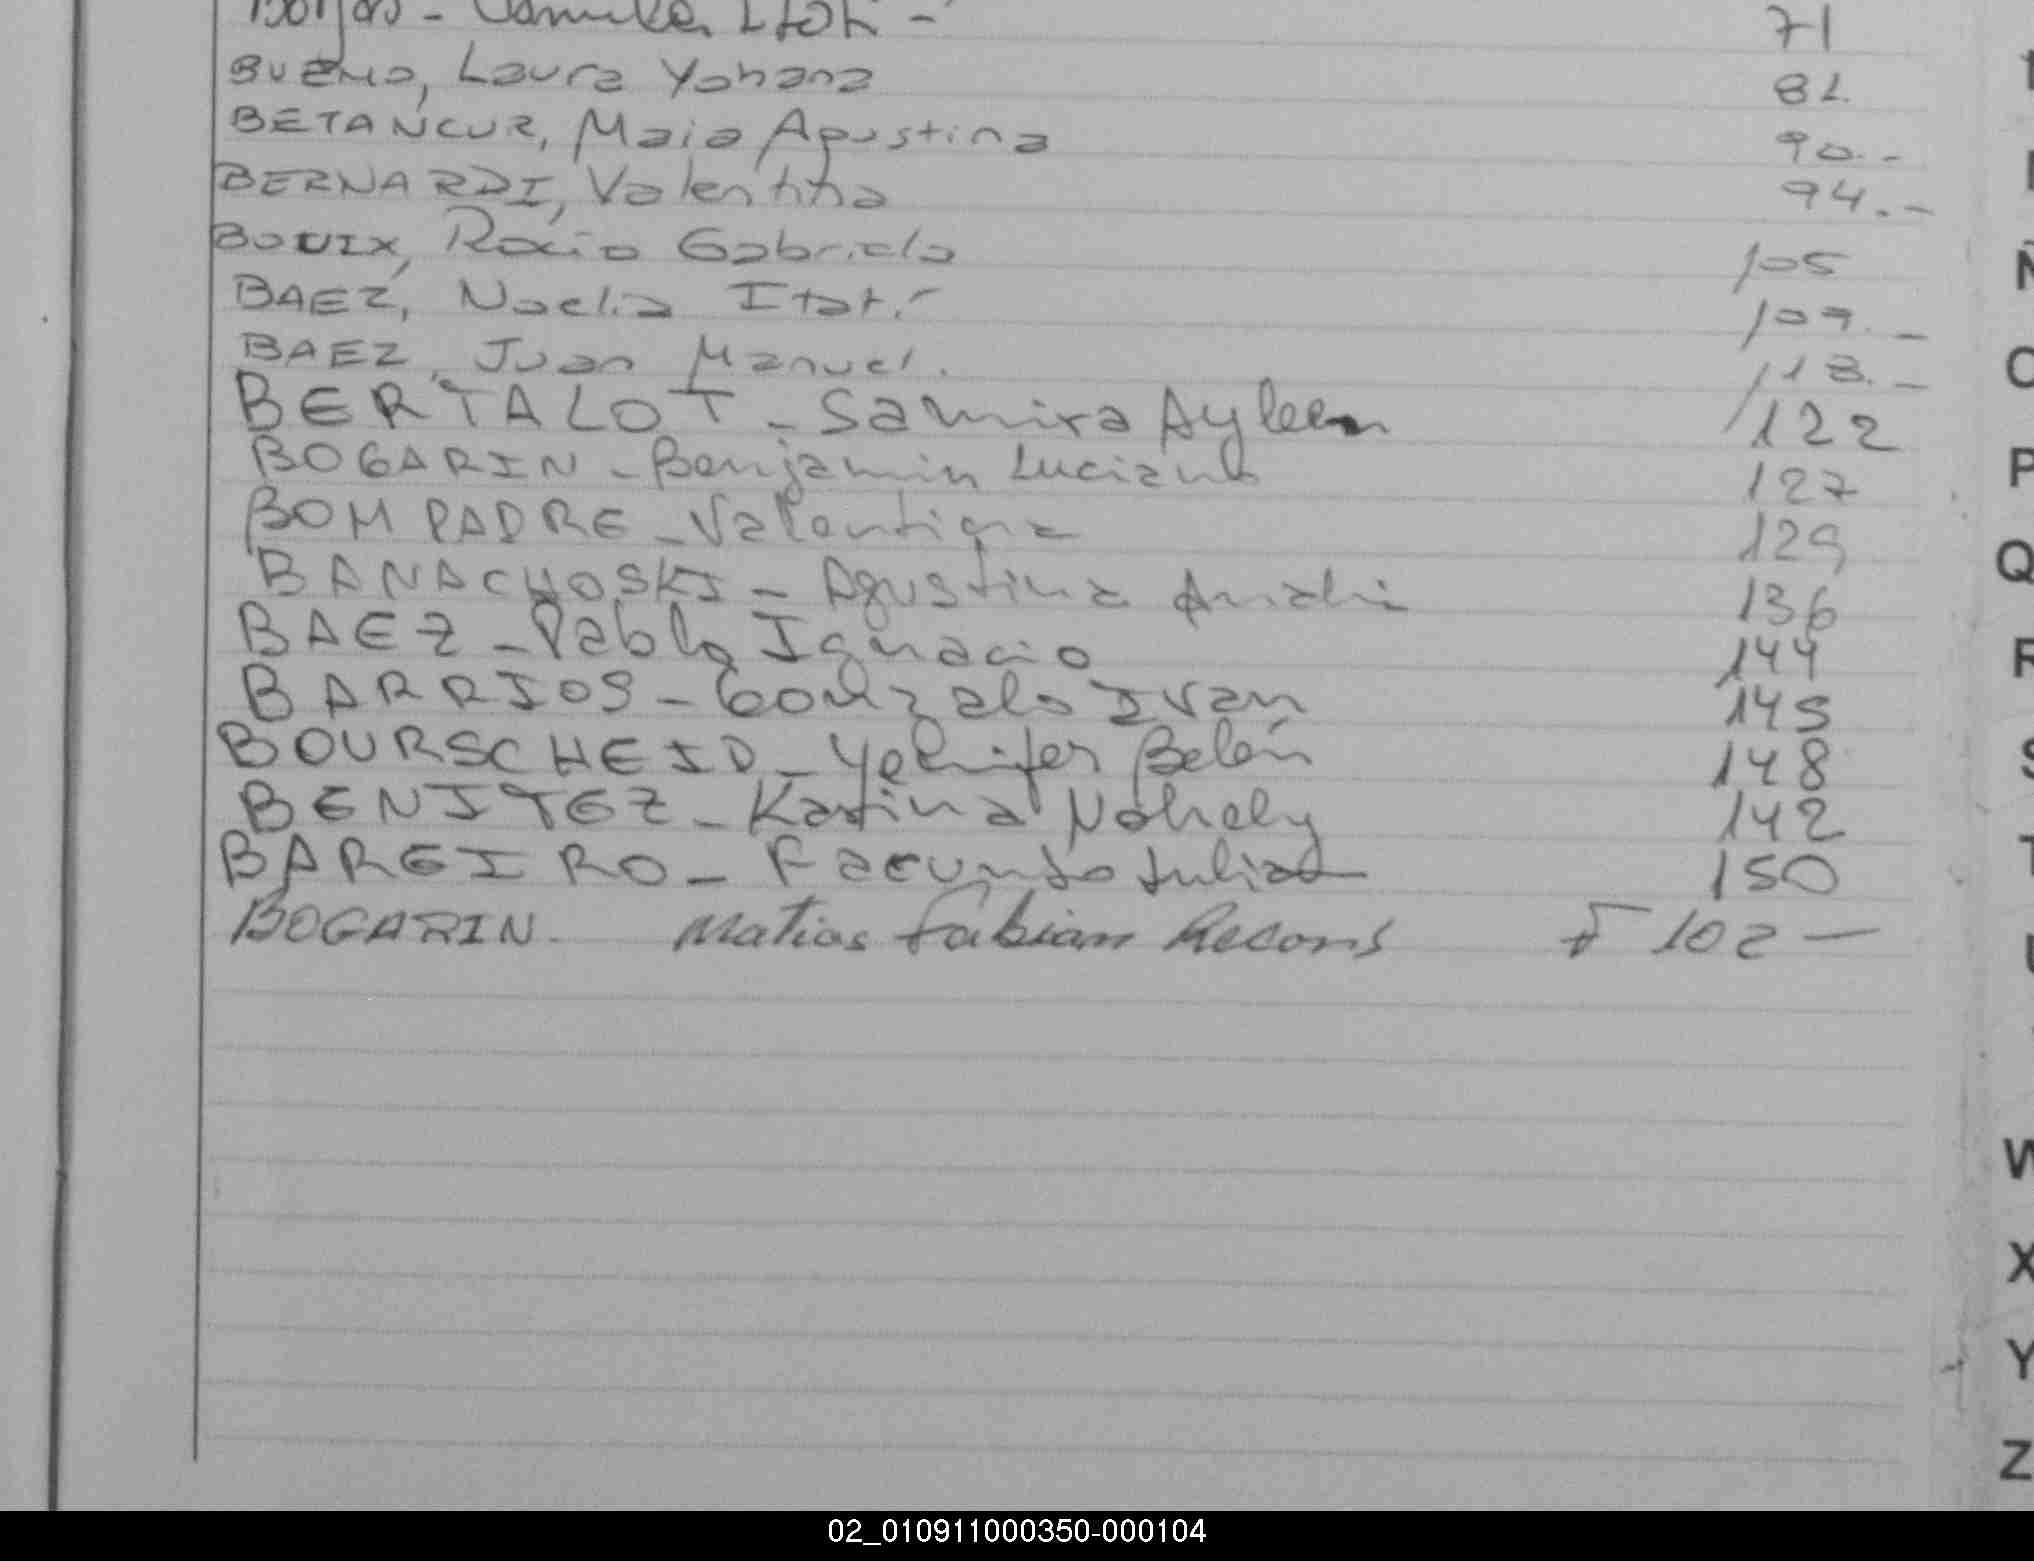 Borjas - Camila Itatí - 71
BUENO, Laura Yohana 82
BETANCUR, Maia Agustina 90.-
BERNARDI, Valentina 94.-
BOUIX, Rocio Gabriela 105
BAEZ, Noelia Itatí 109.-
BAEZ, Juan Manuel. 118.-
BERTALOT - Samira Ayleen 122
BOGARIN - Benjamin Luciano 127
BOMPADRE - Valentina 129
BANACHOSKI - Agustina Analia 136
BAEZ - Pablo Ignacio 144
BARRIOS - Gonzalo Ivan 145
BOURSCHEID - Yenifer Belén 148
BENITEZ - Karina Nahely 142
BAREIRO - Facundo Julian 150
BOGARIN. Matias Fabian Fº 102 -
Ñ
O
P
Q
R
S
T
U
W
X
Y
Z
02_010911000350-000104